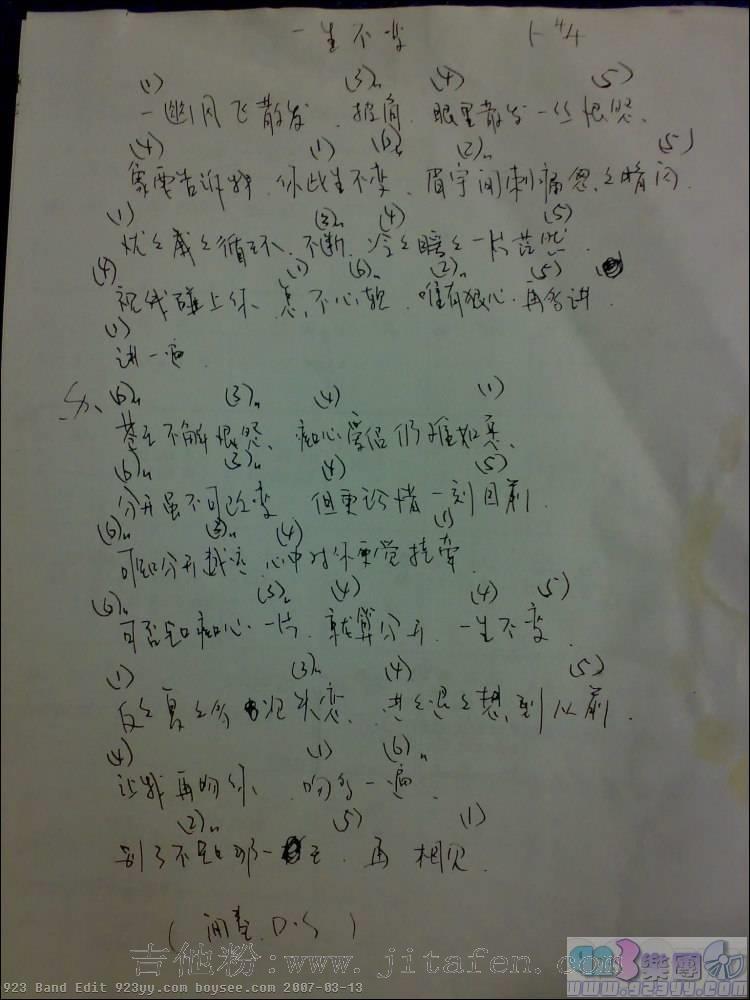 一生不变 1-4/4
(1) (3)m (4) (5)
一幽风飞散发 披肩 眼里散发一丝恨怨、
(4) (1) (6)m (2)m (5)
象要告诉我、你此生不变、眉宇间刺痛忽々暗闪.
(1) (3)m (4) (5)
忧々戚々循环、不断、冷々暖々一片茫然.
(4) (1) (6)m (2)m (5)
视线碰上你、怎、不心软、唯有狠心、再多讲.
(1)
讲一遍.
(6)m (3)m (4) (1)
不解恨怨、痴心爱侣仍难如意、
(6)m (3)m (4) (5)
分开虽不可改变 但更珍惜一刻目前.
(6)m (3)m (4) (1)
可知分开越 心中对你更觉挂牵.
(6)m (3)m (4) (4) (5)
可否知痴心一片、就算分开、一生不变.
(1) (3)m (4) (5)
反々复々多次失恋、进々退々想到从前.
(4) (1) (6)m
让我再吻你、吻多一遍.
(2)m (5) (1)
别了不知那一 再 相见.
(间奏.D.S)
吉他粉:www.jitafen.com
樂團
www.923yy.com
923 Band Edit 923yy.com boysee.com 2007-03-13